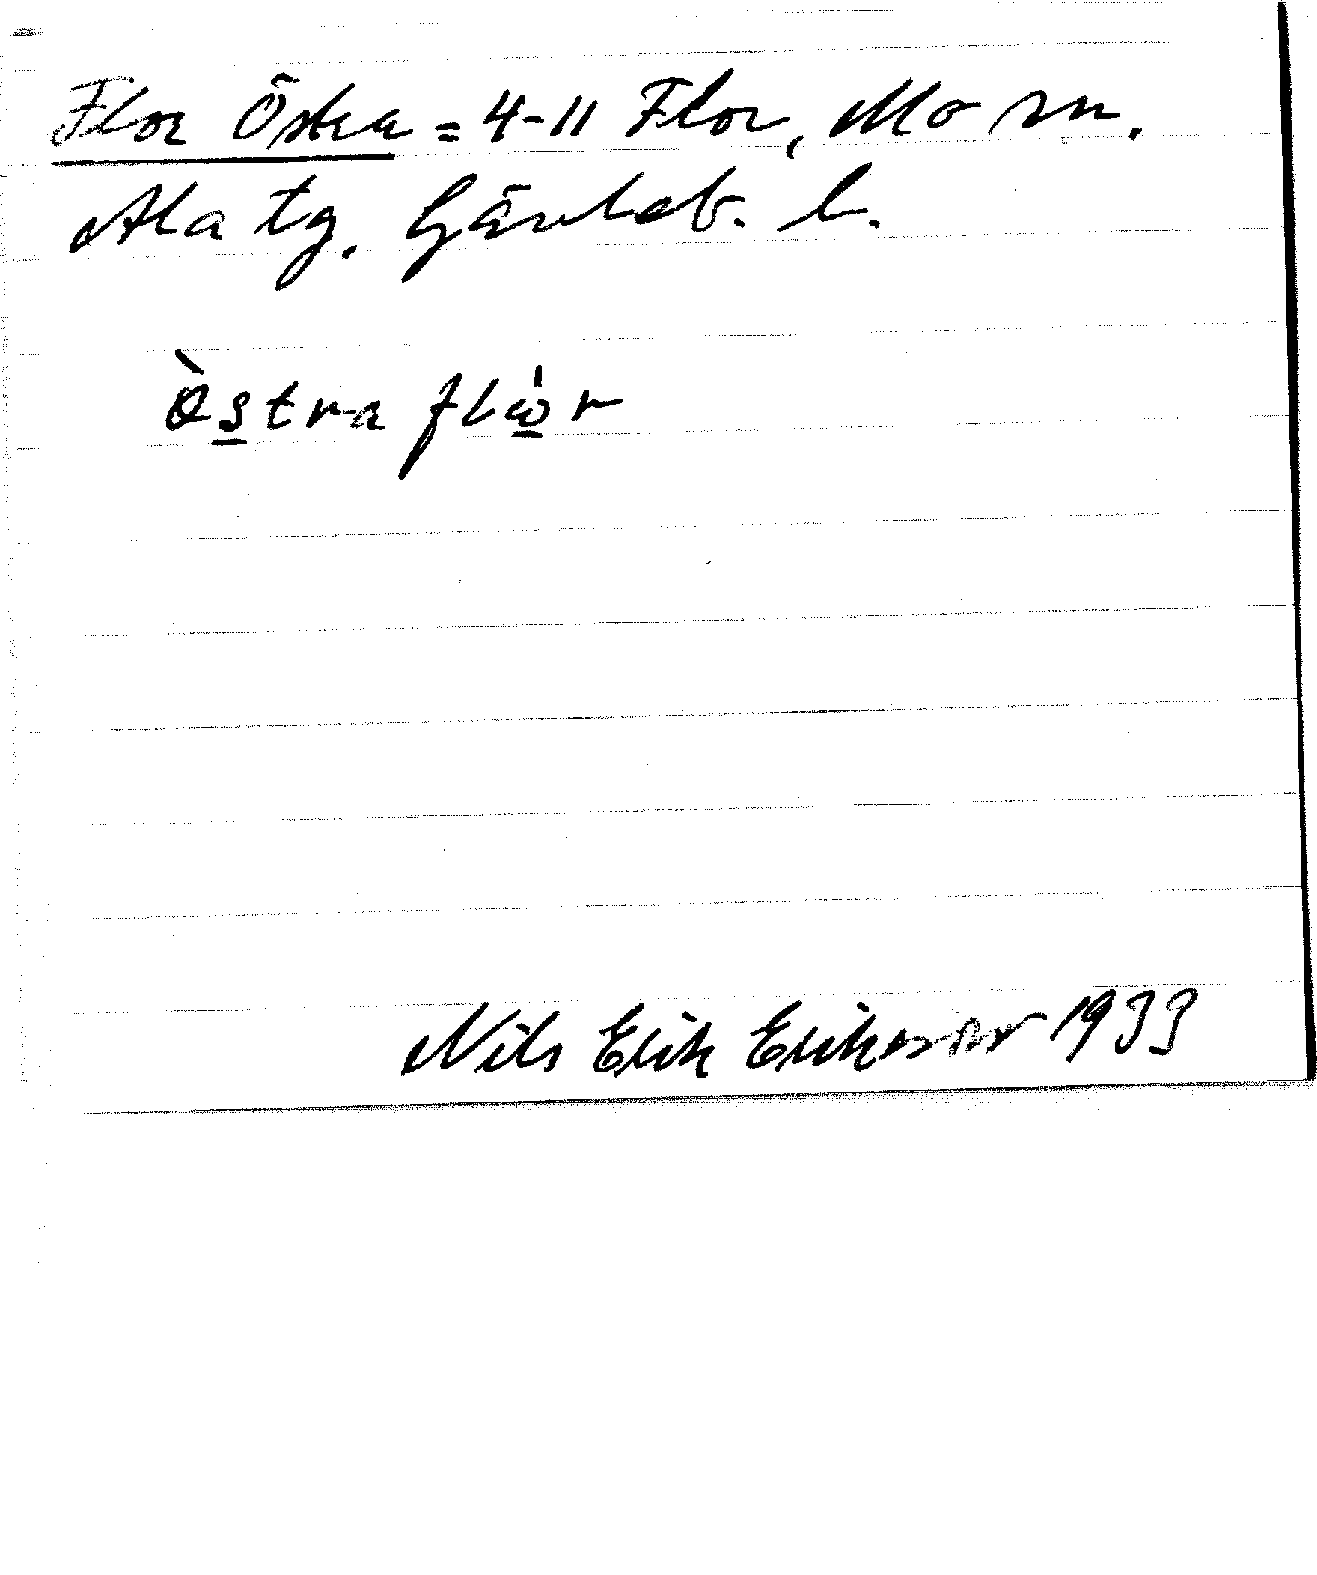 Flor Östra = 4-11 Flor, Mo sn.
Ala tg. Gävleb. l.
òstra flωr
Nils Erik Eriksson 1933